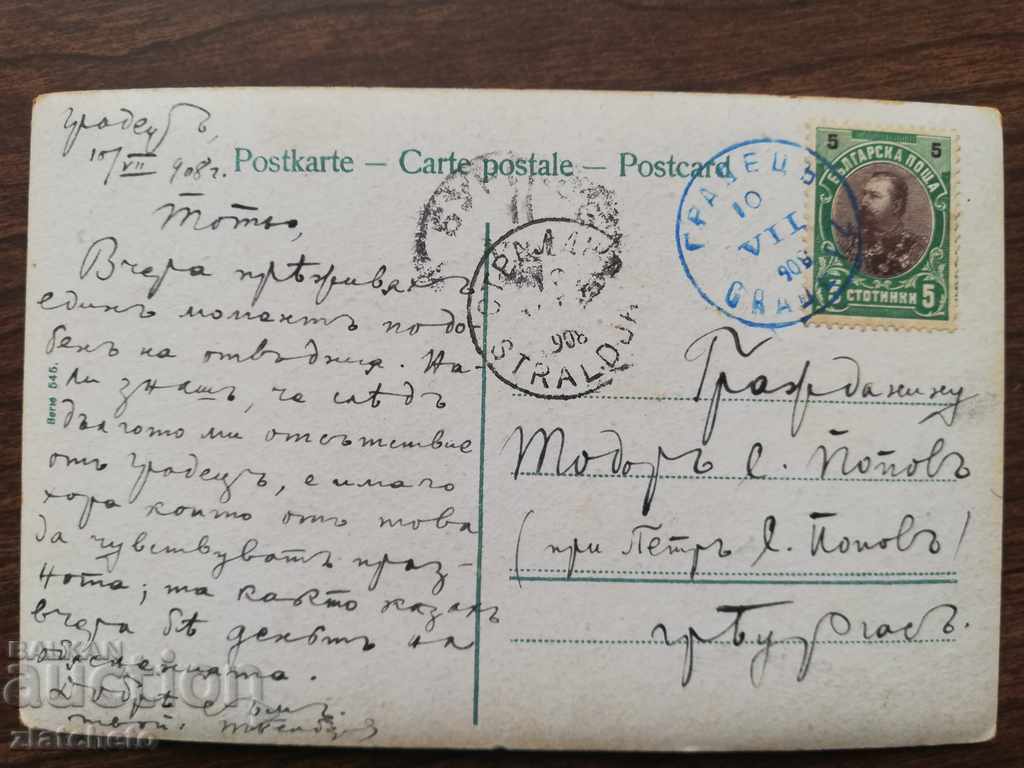 Градецъ,
10/VII 908 г.
Postkarte – Carte postale – Postcard
Тотьо,
Вчера прѣживяхъ
единъ моментъ подо
бенъ на отвъдния. На-
ли знаешъ, че слѣдъ
дългото ми отсътствие
отъ Градецъ, е имало
хора които отъ това
да чувствуватъ праз-
нота; та както казахъ
вчера бѣ деньтъ на
Добрѣ съмъ.
твой:
Berne 545.
СТРАЛДЖА
908
STRALDJA
ГРАДЕЦЪ
10
VII
908
GRADETZ
5 5
БЪЛГАРСКА ПОЩА
5 СТОТИНКИ 5
Гражданину
Тодоръ С. Поповъ
(при Петръ С. Поповъ)
гр. Бургасъ.
BALKAN
auction
zlatcheto